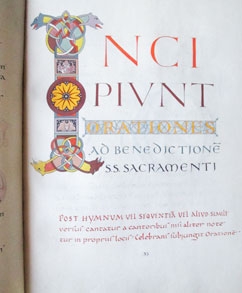 INCI
PIVNT
ORATIONES
AD BENEDICTIONĒ
SS. SACRAMENTI
POST HYMNUM VEL SEQVENTIĀ VEL ALIVD SIMILE
versus cantatur a cantoribus nisi aliter note-
tur in propriis locis. Celebrans subjungit Orationē